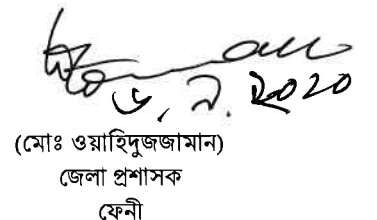 ৬.৯.২০২০
(মোঃ ওয়াহিদুজজামান)
জেলা প্রশাসক
ফেনী